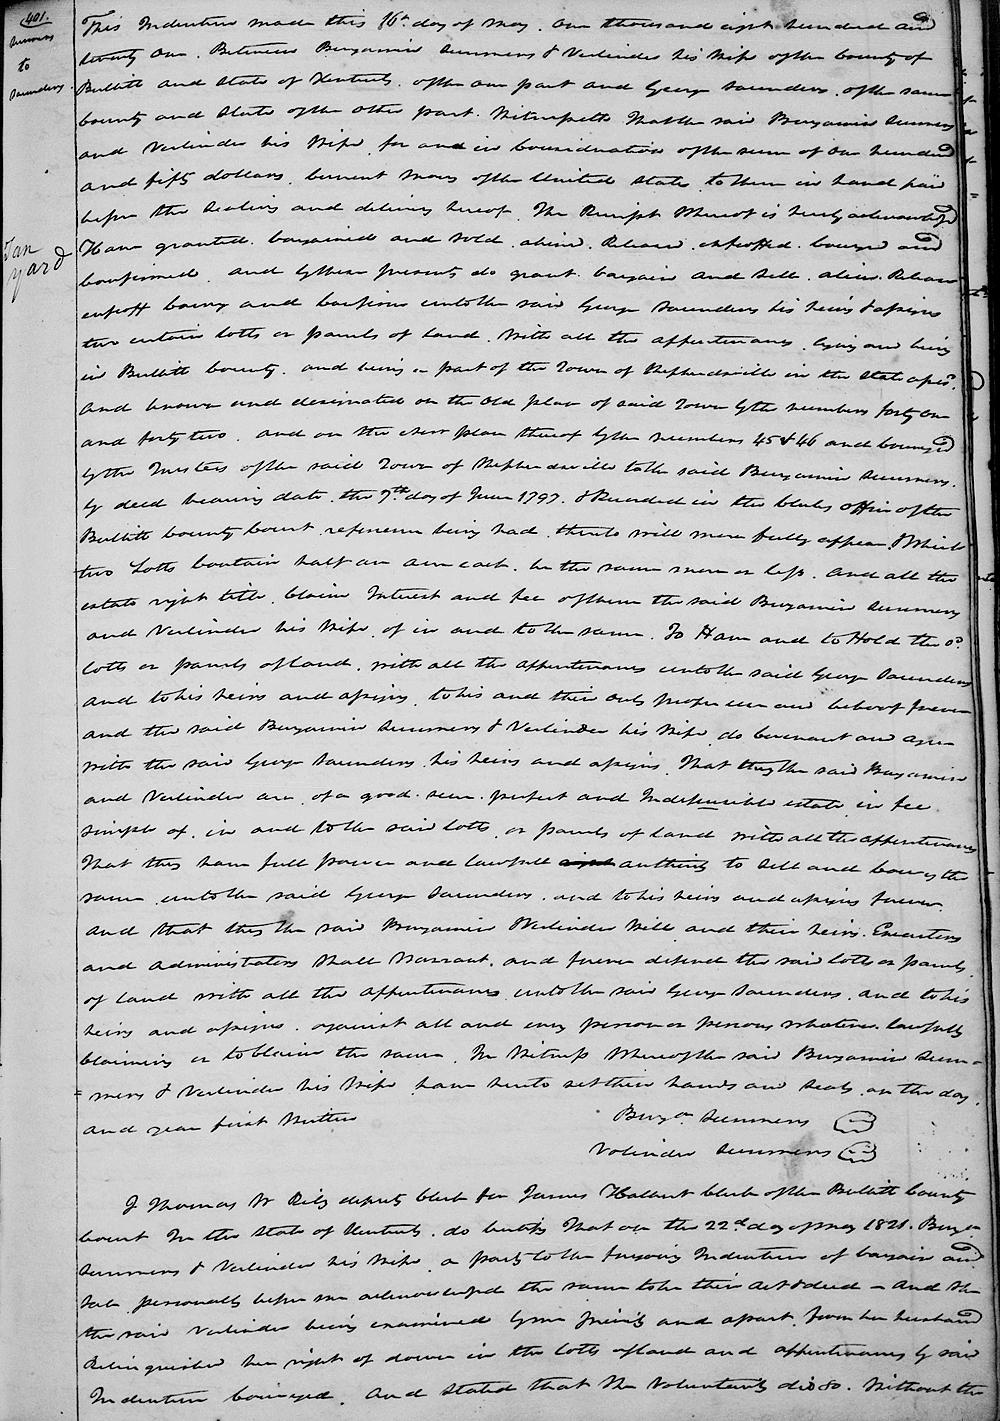 401.
Summers
to
Saunders.
Tan
yard
This Indenture made this 16th day of May, one thousand eight hundred and
twenty one. Between Benjamin Summers & Verlinder his Wife of the County of
Bullitt and State of Kentucky. of the one part and George Saunders, of the same
County and State of the other part. Witnesseth That the said Benjamin Summers
and Verlinder his Wife, for and in Consideration of the sum of One hundred
and fifty dollars, Current Money of the United States, to them in hand paid
before the Sealing and delivery hereof, The Receipt Whereof is hereby acknowledged
Have granted. bargained and sold. alien. Released. enfeoffed. Conveyed and
Confirmed, and by these presents do grant. bargain and Sell. alien. Release
enfeoff Convey and Confirm unto the said George Saunders his heirs & assigns
two certain lotts or parcels of Land. With all the appurtenances, lying and being
in Bullitt County. and being a part of the Town of Shepherdsville in the State afsd.
And known and designated on the Old plan of said Town by the numbers forty one
and forty two. and on the new plan thereof by the numbers 45 & 46 and Conveyed
by the Trustees of the said Town of Shepherdsville to the said Benjamin Summers.
by deed bearing date. the 7th day of June 1797. & Recorded in the Clerks office of the
Bullitt County Court, reference being had, thereto will more fully appear, & Which
two Lotts Contain half an acre each. be the same more or less. And all the
estate right title, Claim Interest and fee of them the said Benjamin Summers
and Verlinder his Wife, of in and to the same. To Have and to Hold the sd.
lotts or parcels of Land. with all the appurtenances unto the said George Saunders
and to his heirs and assigns, to his and their only proper use and behoof forever
and the said Benjamin Summers & Verlinder his Wife, do Covenant and agree
with the said George Saunders, his heirs and assigns, That they the said Benjamin
and Verlinder are, of a good. sure. perfect and Indefensible estate, in fee
simple of, in and to the said lotts, or parcels of land with all the appurtenances
That they have full power and lawfull authority to Sell and Convey the
same, unto the said George Saunders. and to his heirs and assigns forever.
And that they the said Benjamin & Verlinder Will and their heirs. Executors
and administrators Shall Warrant. and forever defend the said lotts or parcels
of land with all the appurtenances, unto the said George Saunders. and to his
heirs and assigns. against all and every person or persons whatever. lawfully
Claiming or to Claim the same. In Witness Whereof the said Benjamin Sum-
mers & Verlinder his Wife have hereto set their hands and Seals, on the day.
and year first Written
Benjn. Summers
Volinder Summers
I Thomas W Rily deputy Clerk for James Halbert Clerk of the Bullitt County
Court In the State of Kentucky. do Certify That on the 22nd day of May 1821. Benjn.
Summers & Verlinder his Wife, a party to the foregoing Indenture of bargain and
Sale personally before me acknowledged the same to be their act & deed - And She
the said Verlinder being examined by me privily and apart. from her husband
Relinquished her right of dower in the lotts of land and appurtenances by said
Indenture Conveyed. And Stated that She Voluntarily did so. Without the